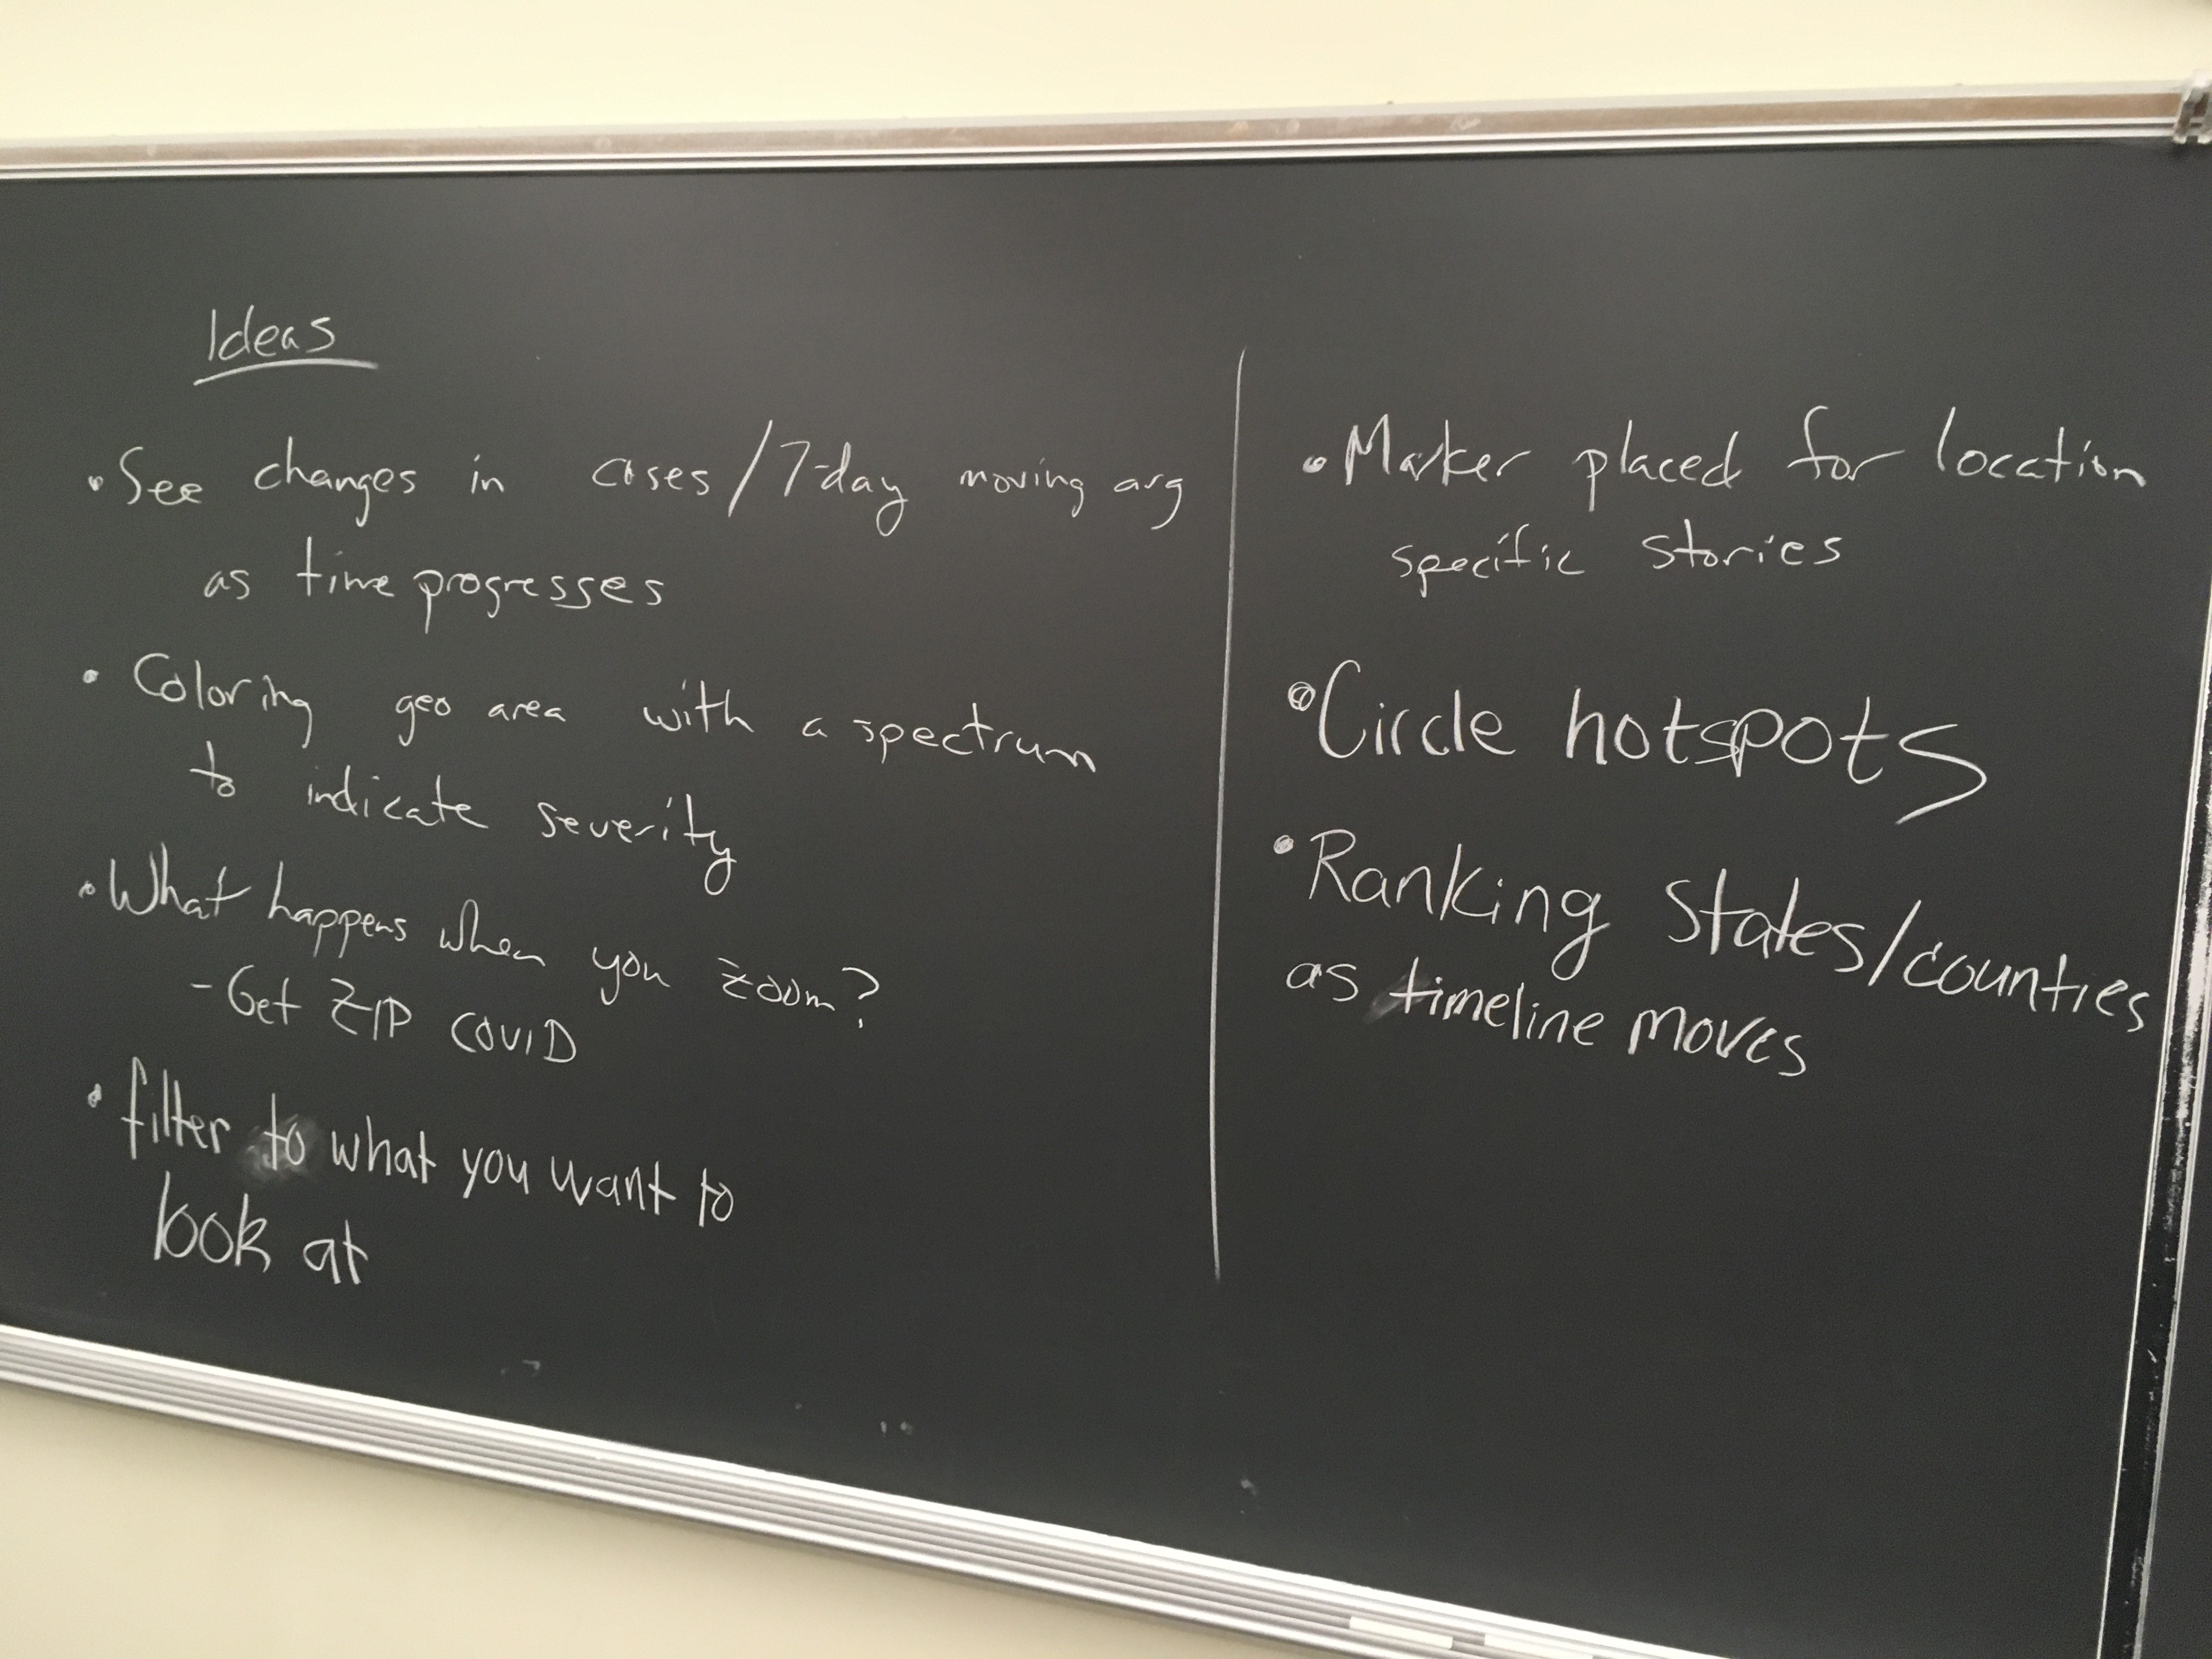 Ideas
• See changes in cases/7-day moving avg
as time progresses
• Coloring geo area with a spectrum
to indicate severity
• What happens when you zoom?
- Get ZIP COVID
• filter to what you want to
look at
• Marker placed for location
specific stories
• Circle hotspots
• Ranking States/counties
as timeline moves